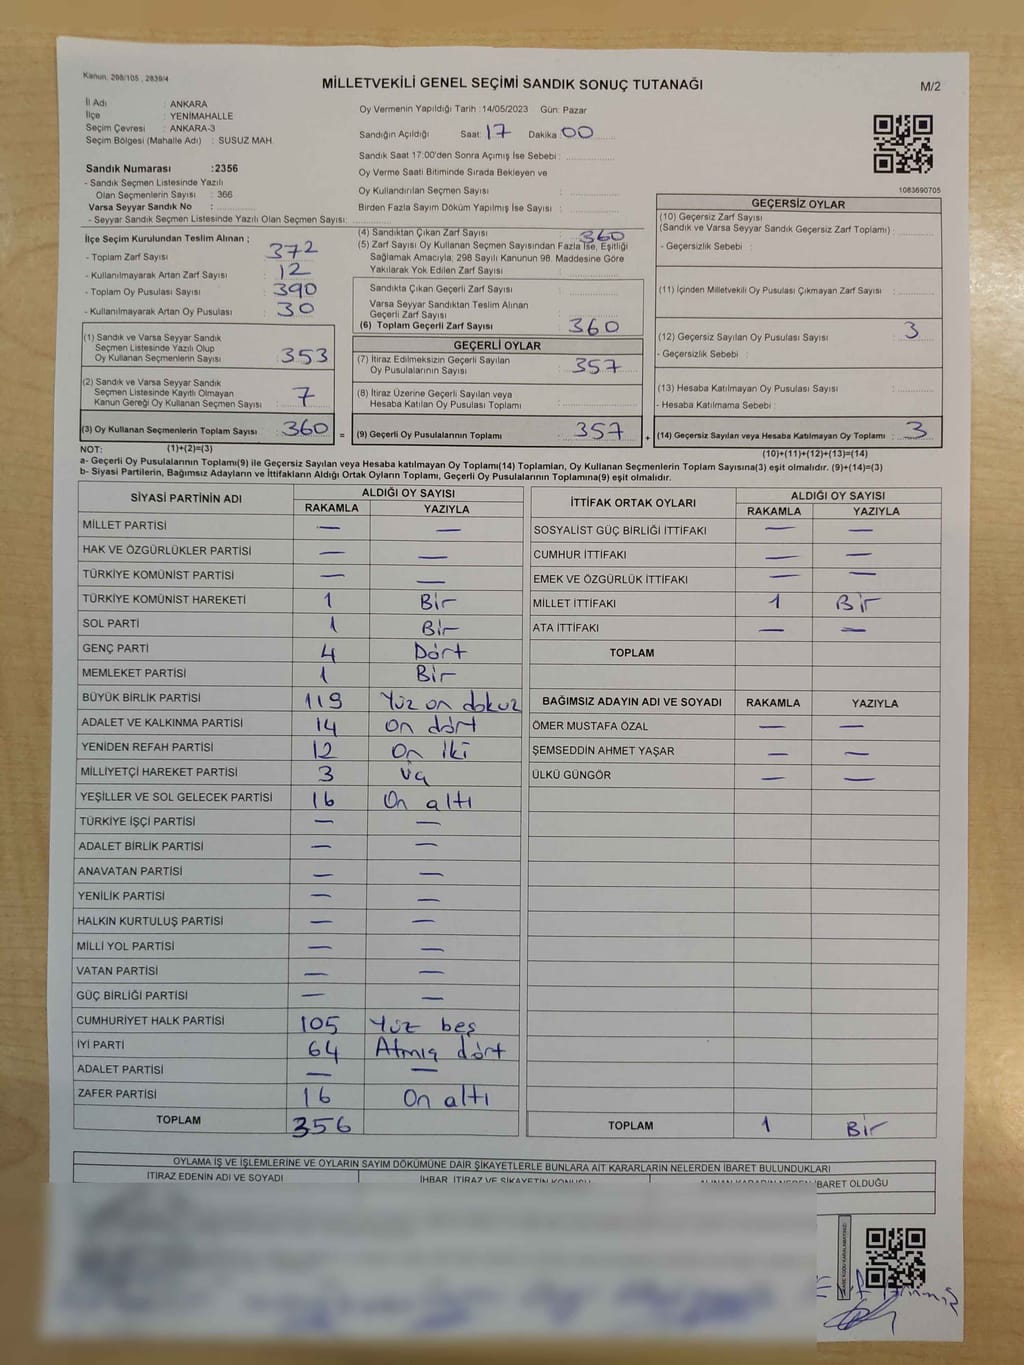 Kanun, 298/105 , 2839/4
MİLLETVEKİLİ GENEL SEÇİMİ SANDIK SONUÇ TUTANAĞI
M/2
İl Adı : ANKARA
İlçe : YENİMAHALLE
Seçim Çevresi : ANKARA-3
Seçim Bölgesi (Mahalle Adı) : SUSUZ MAH.
Oy Vermenin Yapıldığı Tarih : 14/05/2023 Gün: Pazar
Sandığın Açıldığı Saat: 17 Dakika: 00
Sandık Saat 17:00'den Sonra Açımış İse Sebebi :
Oy Verme Saati Bitiminde Sırada Bekleyen ve
Oy Kullandırılan Seçmen Sayısı :
Birden Fazla Sayım Döküm Yapılmış İse Sayısı :
1083690705
Sandık Numarası :2356
- Sandık Seçmen Listesinde Yazılı
Olan Seçmenlerin Sayısı : 366
Varsa Seyyar Sandık No :
- Seyyar Sandık Seçmen Listesinde Yazılı Olan Seçmen Sayısı:
İlçe Seçim Kurulundan Teslim Alınan ;
- Toplam Zarf Sayısı : 372
- Kullanılmayarak Artan Zarf Sayısı : 12
- Toplam Oy Pusulası Sayısı : 390
- Kullanılmayarak Artan Oy Pusulası : 30
(1) Sandık ve Varsa Seyyar Sandık
Seçmen Listesinde Yazılı Olup
Oy Kullanan Seçmenlerin Sayısı : 353
(2) Sandık ve Varsa Seyyar Sandık
Seçmen Listesinde Kayıtlı Olmayan
Kanun Gereği Oy Kullanan Seçmen Sayısı : 7
(3) Oy Kullanan Seçmenlerin Toplam Sayısı : 360 =
(4) Sandıktan Çıkan Zarf Sayısı : 360
(5) Zarf Sayısı Oy Kullanan Seçmen Sayısından Fazla İse, Eşitliği
Sağlamak Amacıyla, 298 Sayılı Kanunun 98. Maddesine Göre
Yakılarak Yok Edilen Zarf Sayısı :
Sandıkta Çıkan Geçerli Zarf Sayısı :
Varsa Seyyar Sandıktan Teslim Alınan
Geçerli Zarf Sayısı :
(6) Toplam Geçerli Zarf Sayısı : 360
GEÇERLİ OYLAR
(7) İtiraz Edilmeksizin Geçerli Sayılan
Oy Pusulalarının Sayısı : 357
(8) İtiraz Üzerine Geçerli Sayılan veya
Hesaba Katılan Oy Pusulası Toplamı :
(9) Geçerli Oy Pusulalarının Toplamı : 357 +
GEÇERSİZ OYLAR
(10) Geçersiz Zarf Sayısı
(Sandık ve Varsa Seyyar Sandık Geçersiz Zarf Toplamı) :
- Geçersizlik Sebebi :
(11) İçinden Milletvekili Oy Pusulası Çıkmayan Zarf Sayısı :
(12) Geçersiz Sayılan Oy Pusulası Sayısı : 3
- Geçersizlik Sebebi :
(13) Hesaba Katılmayan Oy Pusulası Sayısı :
- Hesaba Katılmama Sebebi :
(14) Geçersiz Sayılan veya Hesaba Katılmayan Oy Toplamı : 3
NOT: (1)+(2)=(3)
(10)+(11)+(12)+(13)=(14)
a- Geçerli Oy Pusulalarının Toplamı(9) ile Geçersiz Sayılan veya Hesaba katılmayan Oy Toplamı(14) Toplamları, Oy Kullanan Seçmenlerin Toplam Sayısına(3) eşit olmalıdır. (9)+(14)=(3)
b- Siyasi Partilerin, Bağımsız Adayların ve İttifakların Aldığı Ortak Oyların Toplamı, Geçerli Oy Pusulalarının Toplamına(9) eşit olmalıdır.
SİYASİ PARTİNİN ADI ALDIĞI OY SAYISI
RAKAMLA YAZIYLA
MİLLET PARTİSİ — —
HAK VE ÖZGÜRLÜKLER PARTİSİ — —
TÜRKİYE KOMÜNİST PARTİSİ — —
TÜRKİYE KOMÜNİST HAREKETİ 1 Bir
SOL PARTİ 1 Bir
GENÇ PARTİ 4 Dört
MEMLEKET PARTİSİ 1 Bir
BÜYÜK BİRLİK PARTİSİ 119 Yüz on dokuz
ADALET VE KALKINMA PARTİSİ 14 On dört
YENİDEN REFAH PARTİSİ 12 On iki
MİLLİYETÇİ HAREKET PARTİSİ 3 Üç
YEŞİLLER VE SOL GELECEK PARTİSİ 16 On altı
TÜRKİYE İŞÇİ PARTİSİ — —
ADALET BİRLİK PARTİSİ — —
ANAVATAN PARTİSİ — —
YENİLİK PARTİSİ — —
HALKIN KURTULUŞ PARTİSİ — —
MİLLİ YOL PARTİSİ — —
VATAN PARTİSİ — —
GÜÇ BİRLİĞİ PARTİSİ — —
CUMHURİYET HALK PARTİSİ 105 Yüz beş
İYİ PARTİ 64 Atmış dört
ADALET PARTİSİ — —
ZAFER PARTİSİ 16 On altı
TOPLAM 356
İTTİFAK ORTAK OYLARI ALDIĞI OY SAYISI
RAKAMLA YAZIYLA
SOSYALİST GÜÇ BİRLİĞİ İTTİFAKI — —
CUMHUR İTTİFAKI — —
EMEK VE ÖZGÜRLÜK İTTİFAKI — —
MİLLET İTTİFAKI 1 Bir
ATA İTTİFAKI — —
TOPLAM
BAĞIMSIZ ADAYIN ADI VE SOYADI RAKAMLA YAZIYLA
ÖMER MUSTAFA ÖZAL — —
ŞEMSEDDİN AHMET YAŞAR — —
ÜLKÜ GÜNGÖR — —
TOPLAM 1 Bir
OYLAMA İŞ VE İŞLEMLERİNE VE OYLARIN SAYIM DÖKÜMÜNE DAİR ŞİKAYETLERLE BUNLARA AİT KARARLARIN NELERDEN İBARET BULUNDUKLARI
İTİRAZ EDENİN ADI VE SOYADI İHBAR, İTİRAZ VE ŞİKAYETİN KONUSU ALINAN KARARIN NEDEN İBARET OLDUĞU